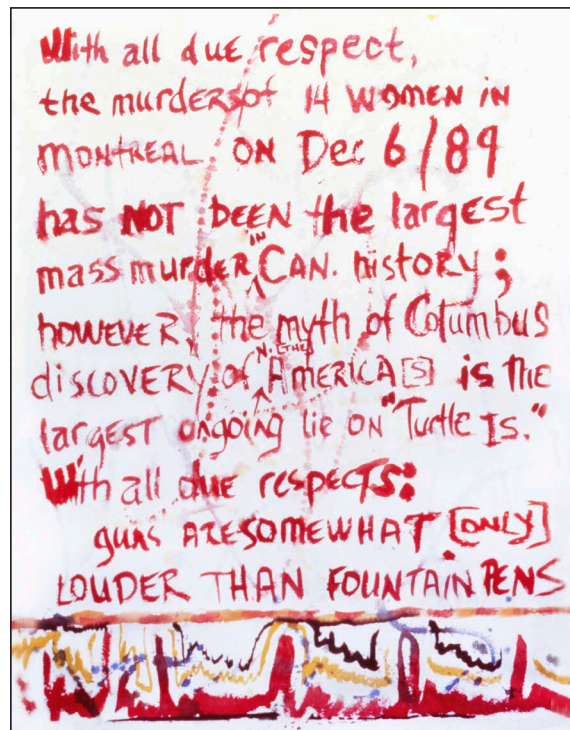 With all due respect,
the murders of 14 WOMEN IN
MONTREAL ON Dec 6/89
has NOT BEEN the largest
mass murder IN CAN. history;
however, the myth of Columbus
discovery of N. [THE] AMERICA[S] is the
largest ongoing lie on "Turtle Is."
With all due respects:
guns ARE SOMEWHAT [ONLY]
LOUDER THAN FOUNTAIN PENS